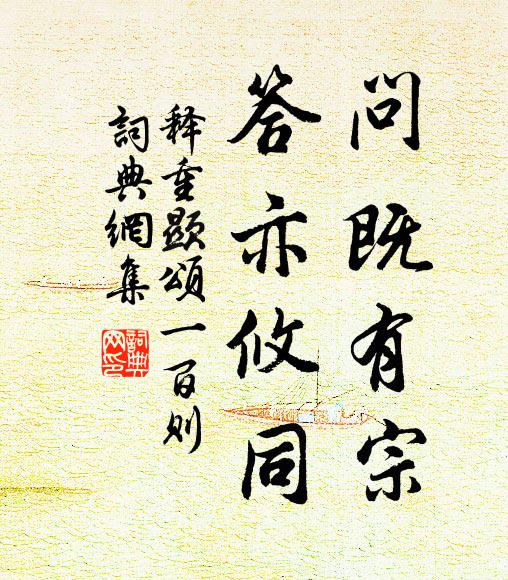 问既有宗
答亦攸同
释重显颂一百则
詞典網集
詞典网印